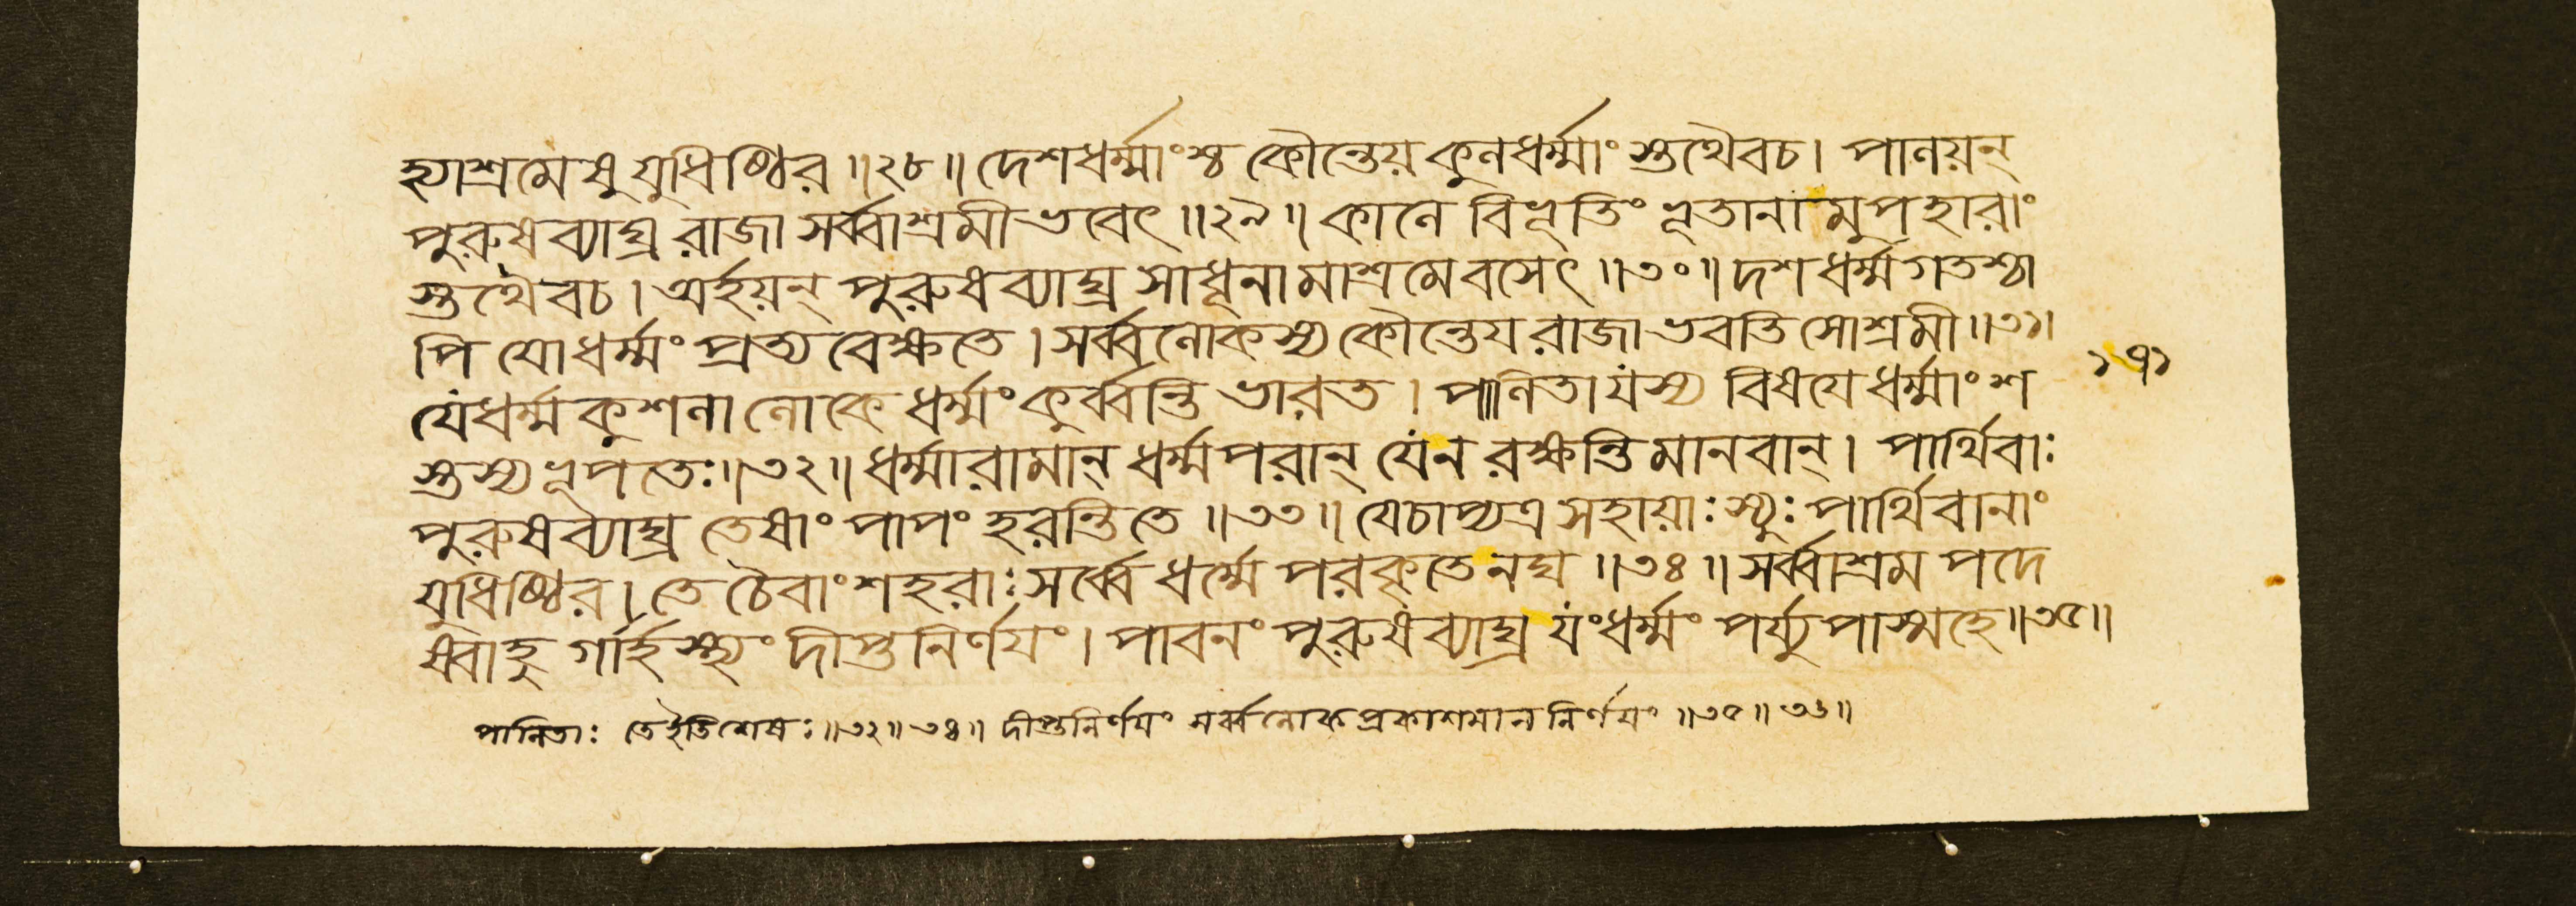 হ্যাশ্রমেষুযুধিষ্ঠির॥২৮॥দেশধর্ম্মাংশ্চ কৌন্তেয় কুলধর্ম্মাং স্তথৈবচ। পালয়ন্
পুরুষব্যাঘ্র রাজা সর্ব্বাশ্রমীভবেৎ॥২৯॥কালে বিভূতিং ভূতানা মুপহারাং
স্তথৈবচ। অর্হয়ন্ পুরুষব্যাঘ্র সাধূনামাশ্রমেবসেৎ॥৩০॥দশধর্ম্মগতশ্চা
পি যোধর্ম্মং প্রত্যবেক্ষতে। সর্ব্বলোকস্য কৌন্তেয রাজা ভবতি সোশ্রমী॥৩১॥
যেধর্ম্মকুশলা লোকে ধর্ম্মংকুর্ব্বন্তি ভারত। পালিতাযস্য বিষযে ধর্ম্মাংশ
স্তস্যভূপতেঃ॥৩২॥ধর্ম্মারামান্ ধর্ম্মপরান্ যেন রক্ষন্তিমানবান্। পার্থিবাঃ
পুরুষব্যাঘ্র তেষাং পাপং হরন্তিতে॥৩৩॥যেচাপ্যত্র সহায়াঃস্যুঃ পার্থিবানাং
যুধিষ্ঠির। তে চৈবাংশহরাঃ সর্ব্বে ধর্ম্মে পরকৃতেনঘ॥৩৪॥সর্ব্বাশ্রম পদে
প্যাহু র্গার্হস্থ্যং দীপ্তনির্ণযং। পাবনং পুরুষব্যাঘ্র যংধর্ম্মং পর্য্যুপাস্মহে॥৩৫॥
১৭১
পালিতাঃ তেইতিশেষঃ॥৩২॥৩৪॥ দীপ্তনির্ণযং সর্ব্বলোকপ্রকাশমান নির্ণযং॥৩৫॥৩৬॥